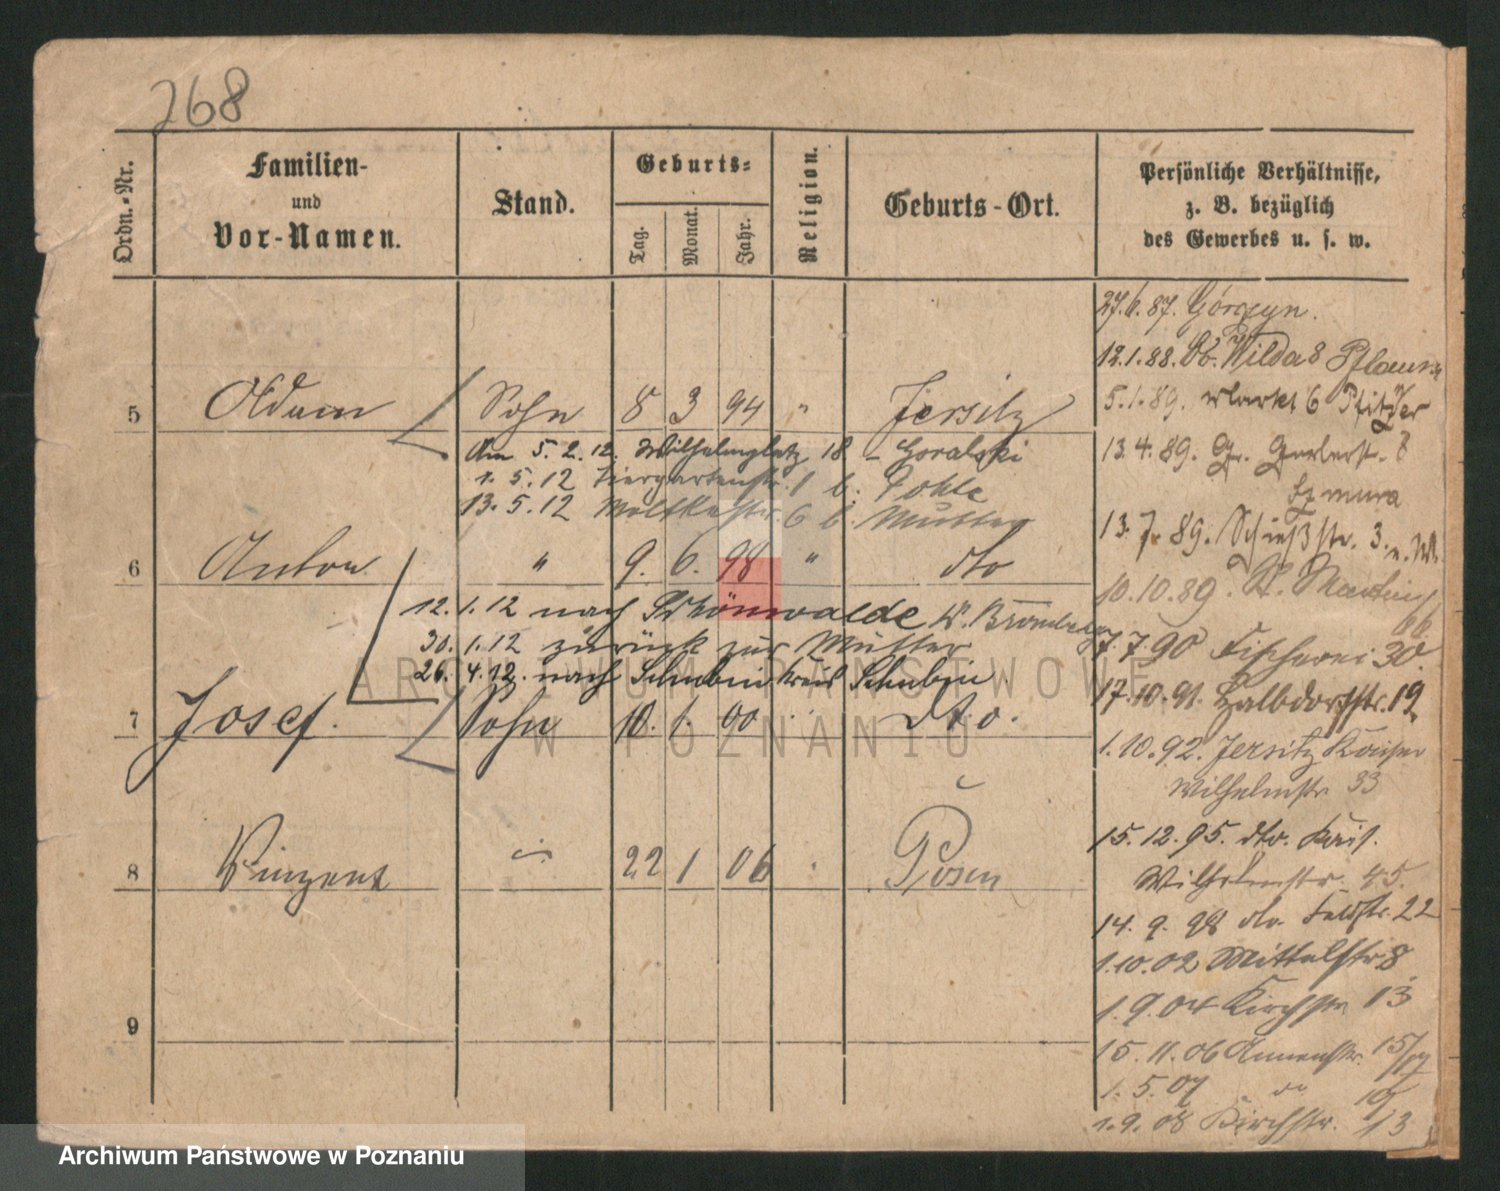 268
Ordn.-Nr.
Familien-
und
Vor-Namen.
Stand.
Geburts-
Tag.
Monat.
Jahr.
Religion.
Geburts-Ort.
Persönliche Verhältnisse,
z. B. bezüglich
des Gewerbes u. s. w.
27.6.87. Górczyn.
12.1.88. Ob. Wilda 8
5.1.89. Markt 6 Pfitzner
13.4.89. Gr. Gerberstr.
Szmura
13.7.89. Schießstr. 3.
10.10.89. St. Martin
66.
7.7.90 Fischerei 30.
17.10.91. Halbdorfstr. 19.
1.10.92. Jersitz Kaiser
Wilhelmstr. 33
15.12.95. dto. Kais.
Wilhelmstr. 45.
14.9.98 dto. Feldstr. 22
1.10.02 Mittelstr 8
1.9.04 Kirchstr 13
15.11.06 Annenstr. 15/17
1.5.07 do 19
1.9.08 Kirchstr. 13
5 Adam Sohn 8 3 94 " Jersitz
Am 5.2.12. Wilhelmplatz 18 - Goralski
1.5.12 Tiergartenstr. 1 b. Pohle
13.5.12 Moltkestr. 6 b. Mutter
6 Anton " 9. 6. 98 " dto
12.1.12 nach Schönwalde Kr. Bromberg
30.1.12 zurück zur Mutter
26.4.12. nach Schubin Kreis Schubin
7 Josef. Sohn 10. 1. 00 " dto.
8 Vinzent " 22 1 06 " Posen
9
ARCHIWUM PAŃSTWOWE
W POZNANIU
Archiwum Państwowe w Poznaniu